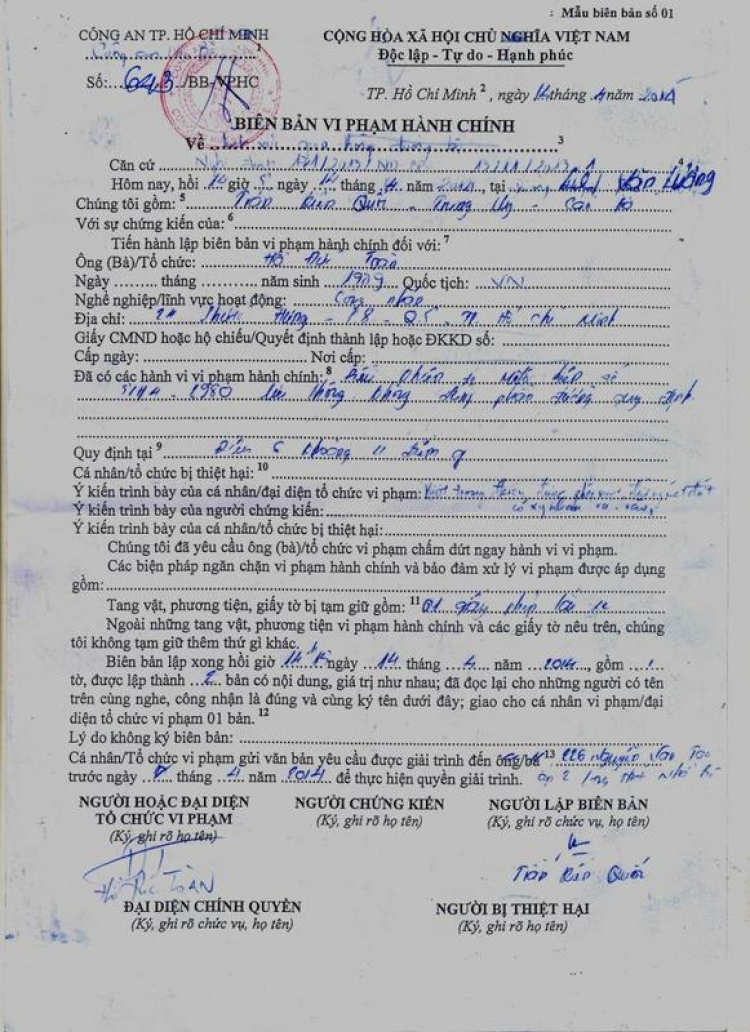 : Mẫu biên bản số 01
CÔNG AN TP. HỒ CHÍ MINH
CỘNG HÒA XÃ HỘI CHỦ NGHĨA VIỆT NAM
Công an 1
Độc lập - Tự do - Hạnh phúc
Số: 643 /BB-VPHC
TP. Hồ Chí Minh 2, ngày 14 tháng 4 năm 2014
BIÊN BẢN VI PHẠM HÀNH CHÍNH
Về 3
Căn cứ 171/2013/ 4
Hôm nay, hồi 14 giờ ngày 14 tháng 4 năm 2014, tại Văn Lương
Chúng tôi gồm: 5 Trần Quốc - Trung úy - Cán bộ
Với sự chứng kiến của: 6
Tiến hành lập biên bản vi phạm hành chính đối với: 7
Ông (Bà)/Tổ chức: Hồ Đức Toàn
Ngày ......... tháng ............ năm sinh 1989 Quốc tịch: VN
Nghề nghiệp/lĩnh vực hoạt động: Công nhân
Địa chỉ: 24 Phước Hưng - P8 - Q5 - TP. Hồ Chí Minh
Giấy CMND hoặc hộ chiếu/Quyết định thành lập hoặc ĐKKD số:
Cấp ngày: Nơi cấp:
Đã có các hành vi vi phạm hành chính: 8 Điều khiển xe mô tô
- 1980 lưu thông không đúng phần đường quy định
Quy định tại 9 Điều 6 khoản
Cá nhân/tổ chức bị thiệt hại: 10
Ý kiến trình bày của cá nhân/đại diện tổ chức vi phạm:
Ý kiến trình bày của người chứng kiến:
Ý kiến trình bày của cá nhân/tổ chức bị thiệt hại:
Chúng tôi đã yêu cầu ông (bà)/tổ chức vi phạm chấm dứt ngay hành vi vi phạm.
Các biện pháp ngăn chặn vi phạm hành chính và bảo đảm xử lý vi phạm được áp dụng
gồm:
Tang vật, phương tiện, giấy tờ bị tạm giữ gồm: 11 01 giấy phép lái xe
Ngoài những tang vật, phương tiện vi phạm hành chính và các giấy tờ nêu trên, chúng
tôi không tạm giữ thêm thứ gì khác.
Biên bản lập xong hồi giờ 14 ngày 14 tháng 4 năm 2014, gồm 1
tờ, được lập thành 2 bản có nội dung, giá trị như nhau; đã đọc lại cho những người có tên
trên cùng nghe, công nhận là đúng và cùng ký tên dưới đây; giao cho cá nhân vi phạm/đại
diện tổ chức vi phạm 01 bản. 12
Lý do không ký biên bản:
Cá nhân/Tổ chức vi phạm gửi văn bản yêu cầu được giải trình đến ông/bà 13 226 Nguyễn Văn Tạo
trước ngày tháng 4 năm 2014 để thực hiện quyền giải trình. ấp 2
NGƯỜI HOẶC ĐẠI DIỆN NGƯỜI CHỨNG KIẾN NGƯỜI LẬP BIÊN BẢN
TỔ CHỨC VI PHẠM (Ký, ghi rõ họ tên) (Ký, ghi rõ chức vụ, họ tên)
(Ký, ghi rõ họ tên)
Trần Quốc
Hồ Đức TOÀN
ĐẠI DIỆN CHÍNH QUYỀN NGƯỜI BỊ THIỆT HẠI
(Ký, ghi rõ chức vụ, họ tên) (Ký, ghi rõ họ tên)